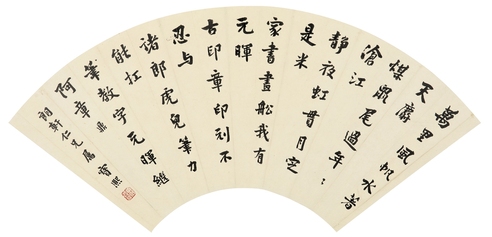 萬里風帆水著
天麝
煤鼠尾過年〻
滄江
靜夜虹貫月定
是米
家書畫船我有
元暉
古印章印刓不
忍与
諸郎虎兒筆力
能扛
筆教字元暉繼
阿章 鼎
朗軒仁兄屬 寶熙